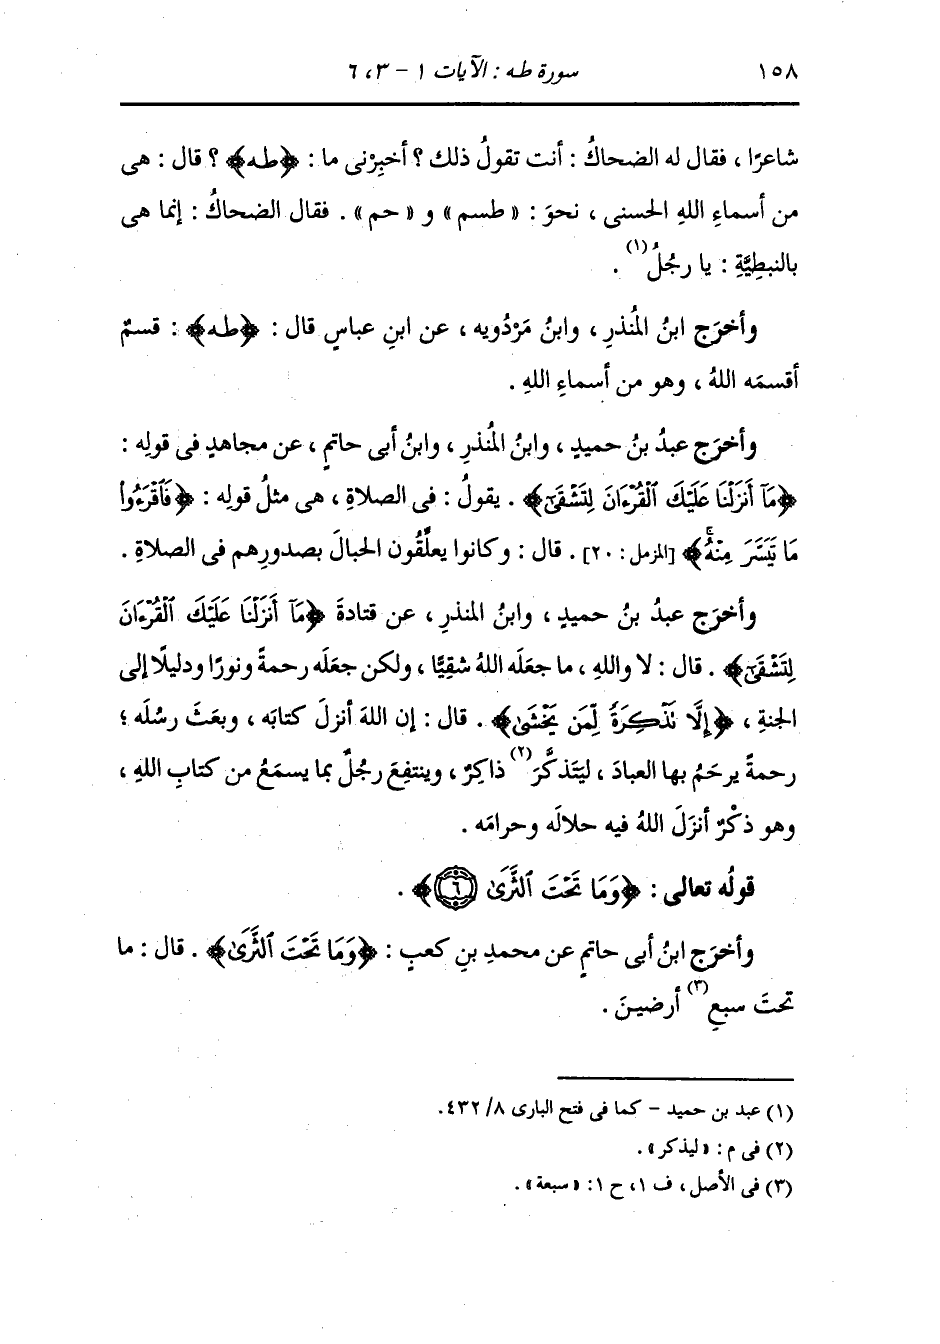 ١٥٨ سورة طه : الآيات ١ - ٣، ٦
شاعرًا ، فقال له الضحاكُ : أنت تقولُ ذلك ؟ أخبِرْنى ما : ﴿طه﴾ ؟ قال : هى
من أسماءِ اللهِ الحسنى ، نحوَ : « طسم » و « حم » . فقال الضحاكُ : إنما هى
بالنبطِيَّةِ : يا رجُلُ(١) .
وأخرَج ابنُ المُنذرِ ، وابنُ مَرْدُويه ، عن ابنِ عباسٍ قال : ﴿طه﴾ : قسمٌ
أقسمَه اللهُ ، وهو من أسماءِ اللهِ .
وأخرَج عبدُ بنُ حميدٍ ، وابنُ المُنذرِ ، وابنُ أبى حاتمٍ ، عن مجاهدٍ فى قولِه :
﴿مَآ أَنزَلْنَا عَلَيْكَ ٱلْقُرْءَانَ لِتَشْقَىٰٓ﴾ . يقولُ : فى الصلاةِ ، هى مثلُ قولِه : ﴿فَٱقْرَءُوا۟
مَا تَيَسَّرَ مِنْهُۚ﴾ [المزمل : ٢٠] . قال : وكانوا يعلِّقُون الحبالَ بصدورِهم فى الصلاةِ .
وأخرَج عبدُ بنُ حميدٍ ، وابنُ المنذرِ ، عن قتادةَ ﴿مَآ أَنزَلْنَا عَلَيْكَ ٱلْقُرْءَانَ
لِتَشْقَىٰٓ﴾ . قال : لا واللهِ ، ما جعَلَه اللهُ شقِيًّا ، ولكن جعَلَه رحمةً ونورًا ودليلًا إلى
الجنةِ ، ﴿إِلَّا تَذْكِرَةً لِّمَن يَخْشَىٰ﴾ . قال : إن اللهَ أنزلَ كتابَه ، وبعَثَ رسُلَه ؛
رحمةً يرحَمُ بها العبادَ ، ليَتَذكَّرَ(٢) ذاكِرٌ ، وينتفِعَ رجُلٌ بما يسمَعُ من كتابِ اللهِ ،
وهو ذكْرٌ أنزَلَ اللهُ فيه حلالَه وحرامَه .
قولُه تعالى : ﴿وَمَا تَحْتَ ٱلثَّرَىٰ ٦﴾ .
وأخرَج ابنُ أبى حاتمٍ عن محمدِ بنِ كعبٍ : ﴿وَمَا تَحْتَ ٱلثَّرَىٰ﴾ . قال : ما
تحتَ سبعِ(٣) أرضينَ .
(١) عبد بن حميد - كما فى فتح البارى ٨/ ٤٣٢.
(٢) فى م : «ليذكر» .
(٣) فى الأصل ، ف ١، ح ١: «سبعة» .